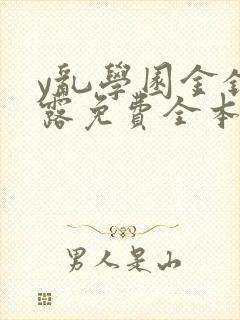 y亂學園金銀
露免費全本
男人是山